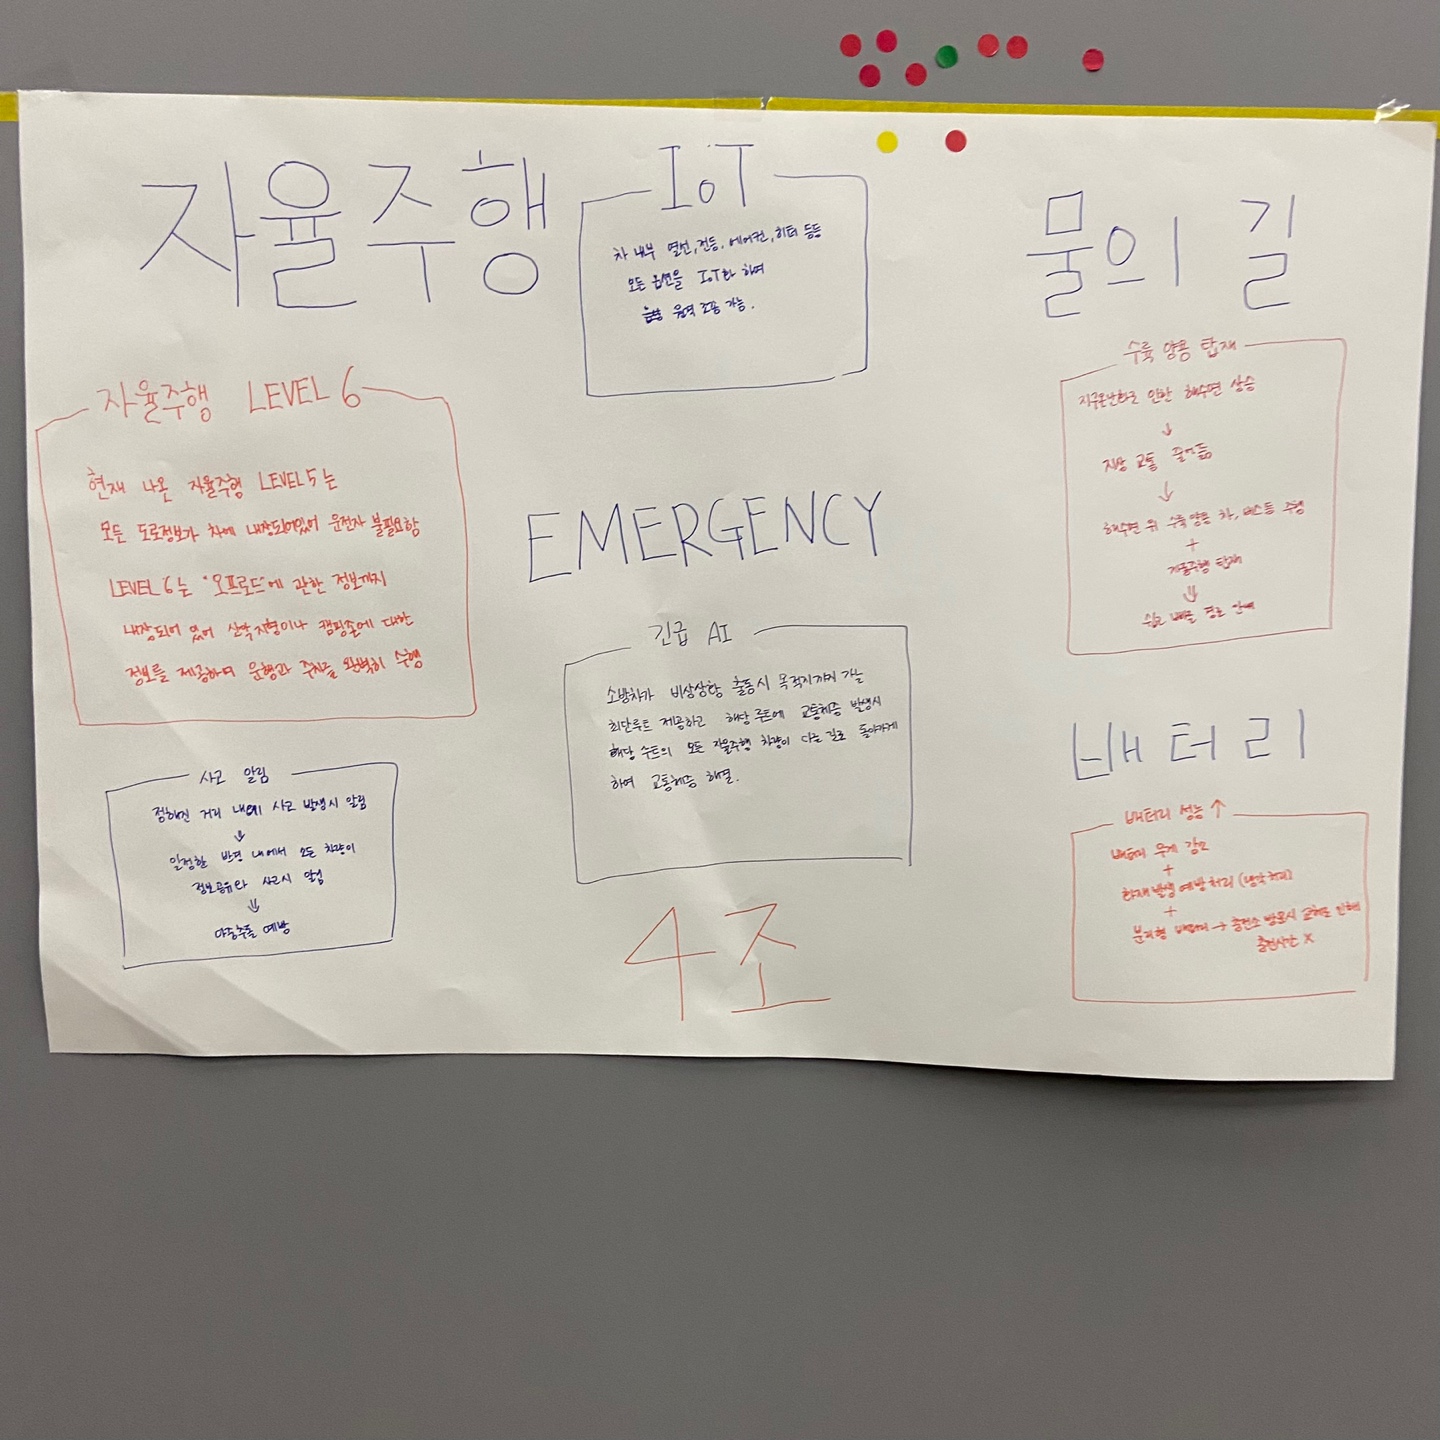 자율주행
IoT
차 내부 열선, 전등, 에어컨, 히터 등등
모든 옵션을 IoT화 하여
원격 조종 가능.
물의 길
수륙 양용 탑재
지구온난화로 인한 해수면 상승
↓
지상 교통 줄어듦
↓
해수면 위 수륙양용 차, 버스등 주행
+
자율주행 탑재
⇓
쉽고 빠른 경로 안내
자율주행 LEVEL 6
현재 나온 자율주행 LEVEL 5는
모든 도로정보가 차에 내장되어있어 운전자 불필요함
LEVEL 6는 "오프로드"에 관한 정보까지
내장되어 있어 산악지형이나 캠핑촌에 대한
정보를 제공하며 운행과 주차를 완벽히 수행
EMERGENCY
긴급 AI
소방차가 비상상황 출동시 목적지까지 가는
최단루트 제공하고 해당 루트에 교통체증 발생시
해당 루트의 모든 자율주행 차량이 다른 길로 돌아가게
하여 교통체증 해결.
사고 알림
정해진 거리 내에 사고 발생시 알림
⇓
일정한 반경 내에서 모든 차량이
정보공유와 사고시 알림
⇓
다중추돌 예방
배터리
배터리 성능 ↑
배터리 무게 감소
+
화재발생 예방처리 (냉각처리)
+
분리형 배터리 → 충전소 방문시 교체로 인해
충전시간 X
4조